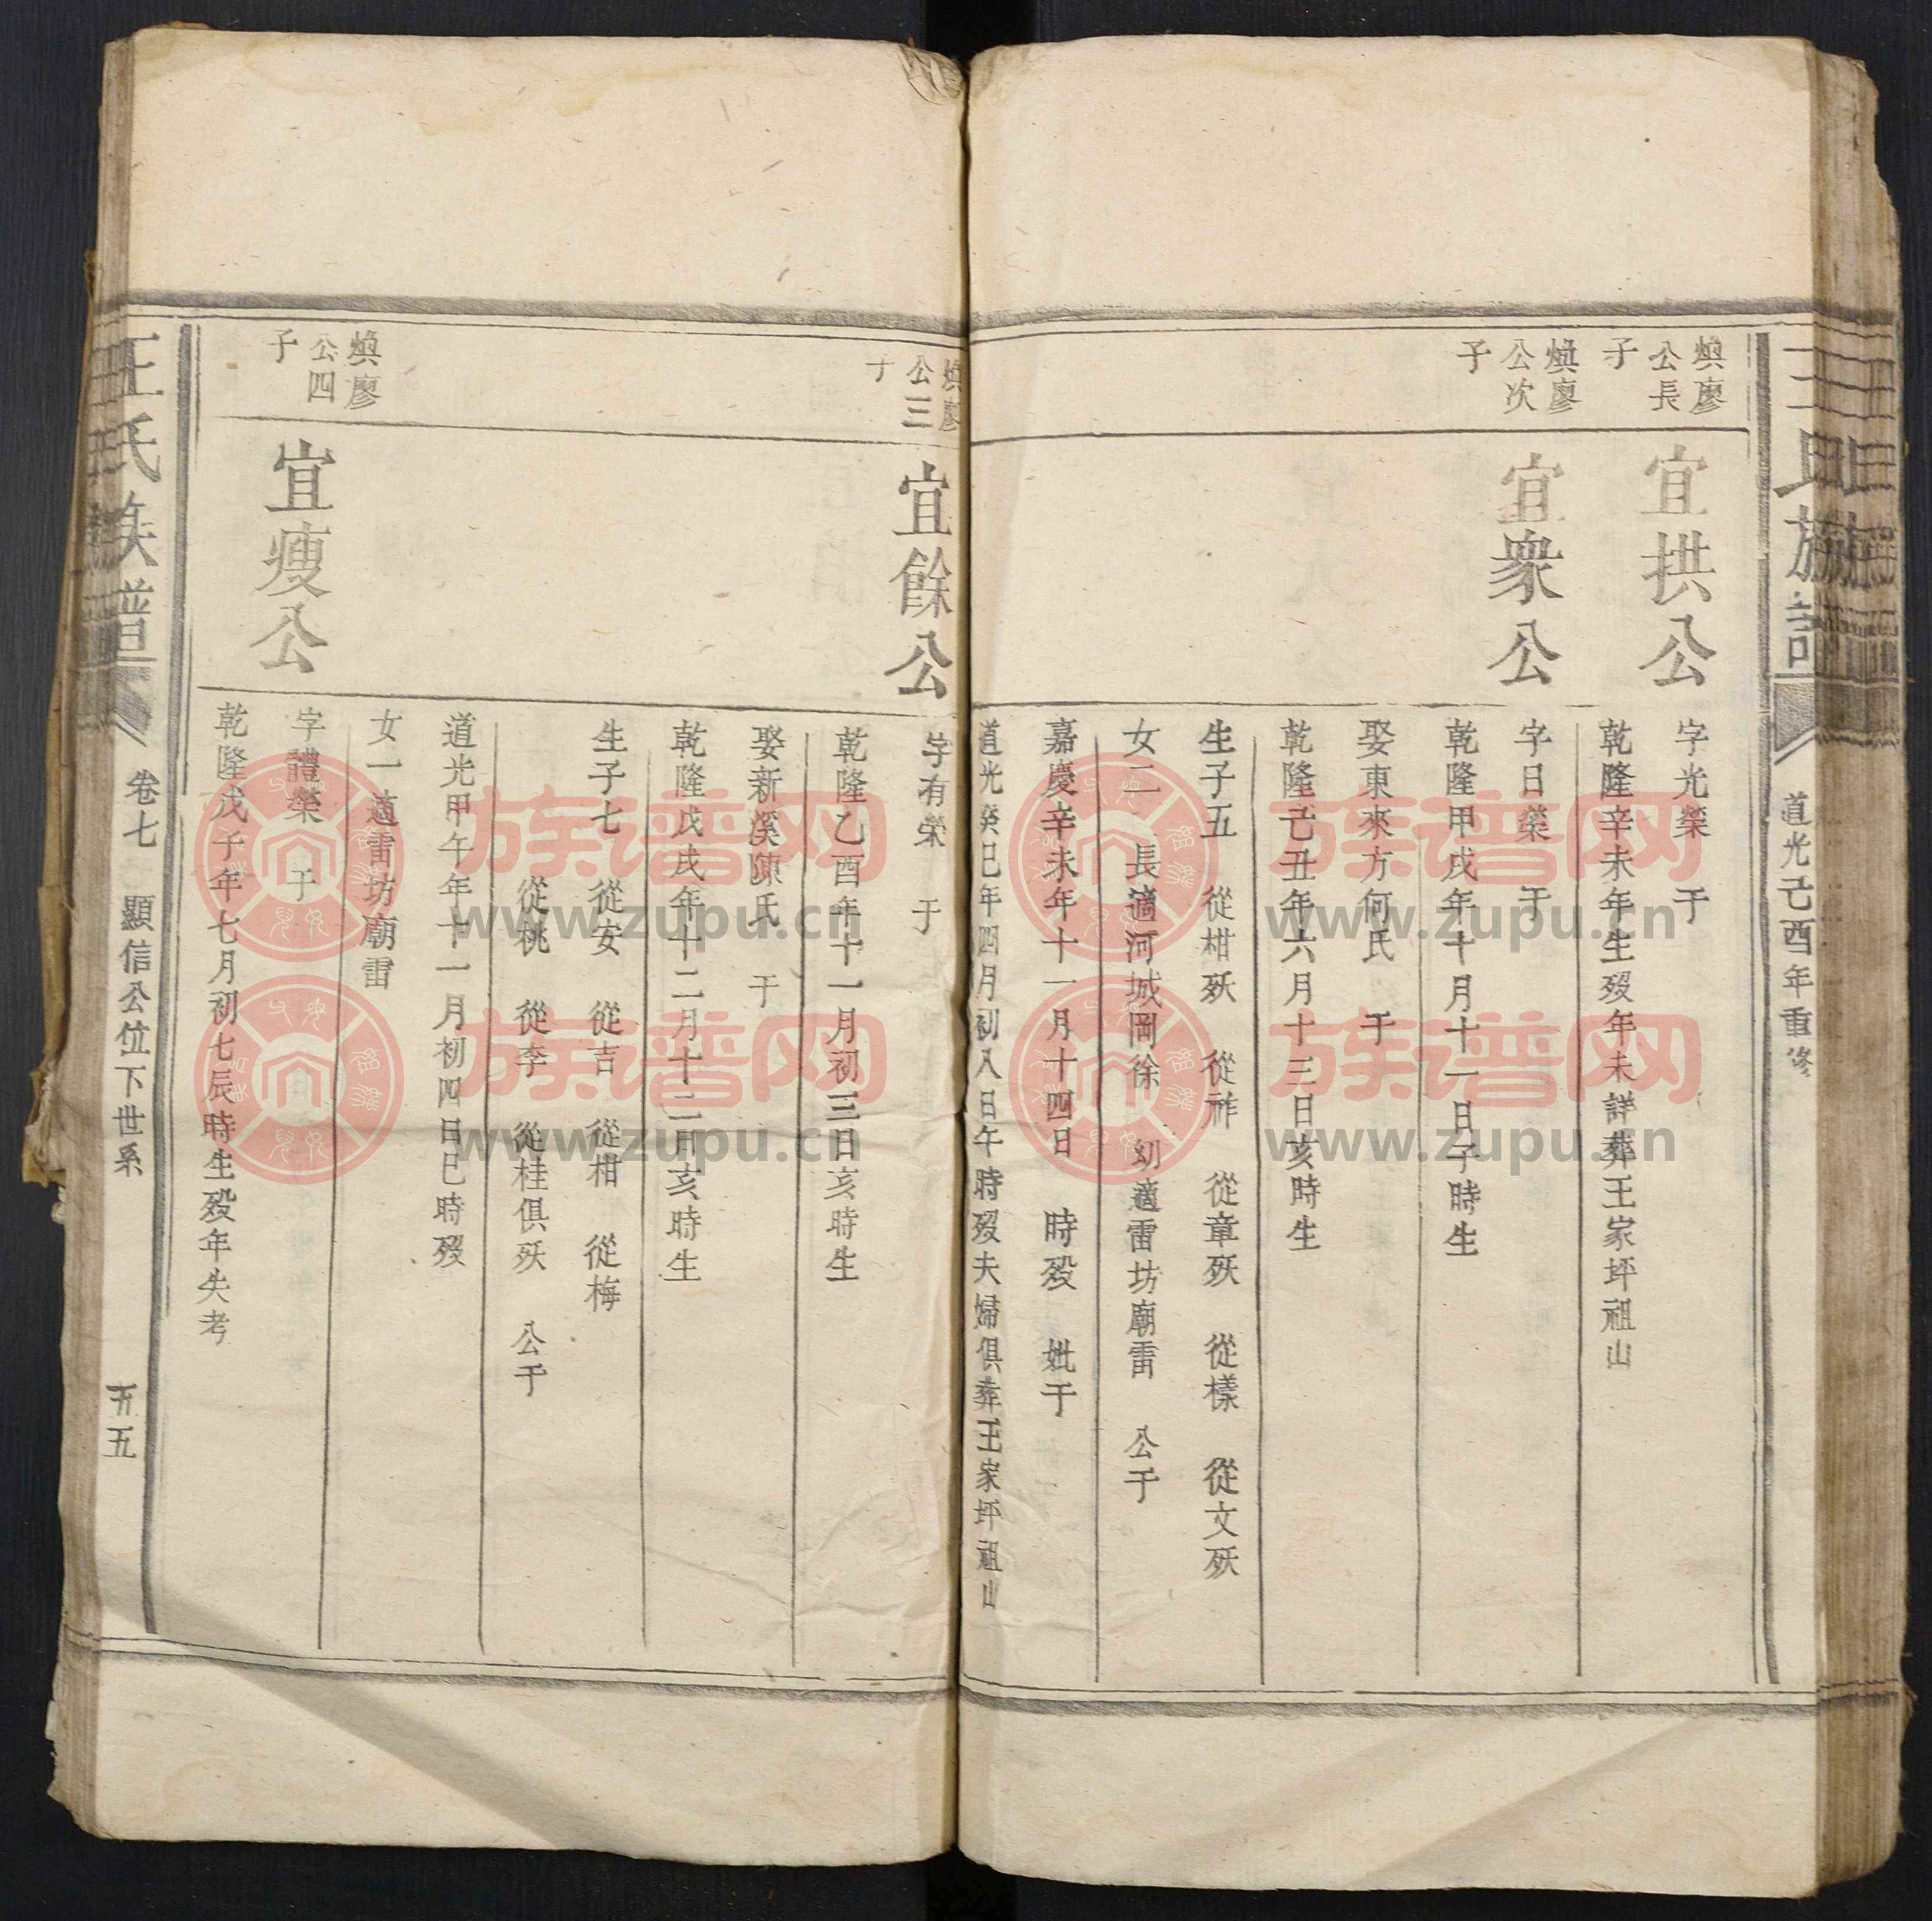 王氏族譜
道光己酉年重修
煥廖
公長
子
宜拱公
字光榮 于
乾隆辛未年生歿年未詳葬王家坪祖山
煥廖
公次
子
宜衆公
字日榮 于
乾隆甲戌年十月十一日子時生
娶東來方何氏 于
乾隆己丑年六月十三日亥時生
生子五 從柑殀 從祚 從章殀 從樣 從文殀
女二 長適河城岡徐 幼適雷坊廟雷 公于
嘉慶辛未年十一月十四日 時歿 妣于
道光癸巳年四月初八日午時歿夫婦俱葬王家坪祖山
煥廖
公三
子
宜餘公
字有榮 于
乾隆乙酉年十一月初三日亥時生
娶新溪陳氏 于
乾隆戊戌年十二月十二日亥時生
生子七 從安 從吉 從柑 從梅
從桃 從李 從桂俱殀 公于
道光甲午年十一月初四日巳時歿
女一適雷坊廟雷
煥廖
公四
子
宜瘦公
字體榮 于
乾隆戊子年七月初七辰時生歿年失考
王氏族譜
卷七 顯信公位下世系
五五
族谱网
www.zupu.cn
族谱网
www.zupu.cn
族谱网
www.zupu.cn
族谱网
www.zupu.cn